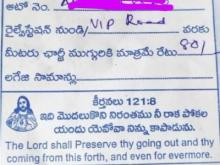 ఆటో నెం.
రైల్వేస్టేషన్ నుండి/ VIP Road వరకు
మీటరు ఛార్జీ ముగ్గురికి మాత్రమే రేటు 80/
లగేజి సామాన్లు
కీర్తనలు 121:8
ఇది మొదలుకొని నిరంతరము నీ రాక పోకల
యందు యెహోవా నిన్ను కాపాడును.
The Lord shall Preserve thy going out and thy
coming from this forth, and even for evermore.